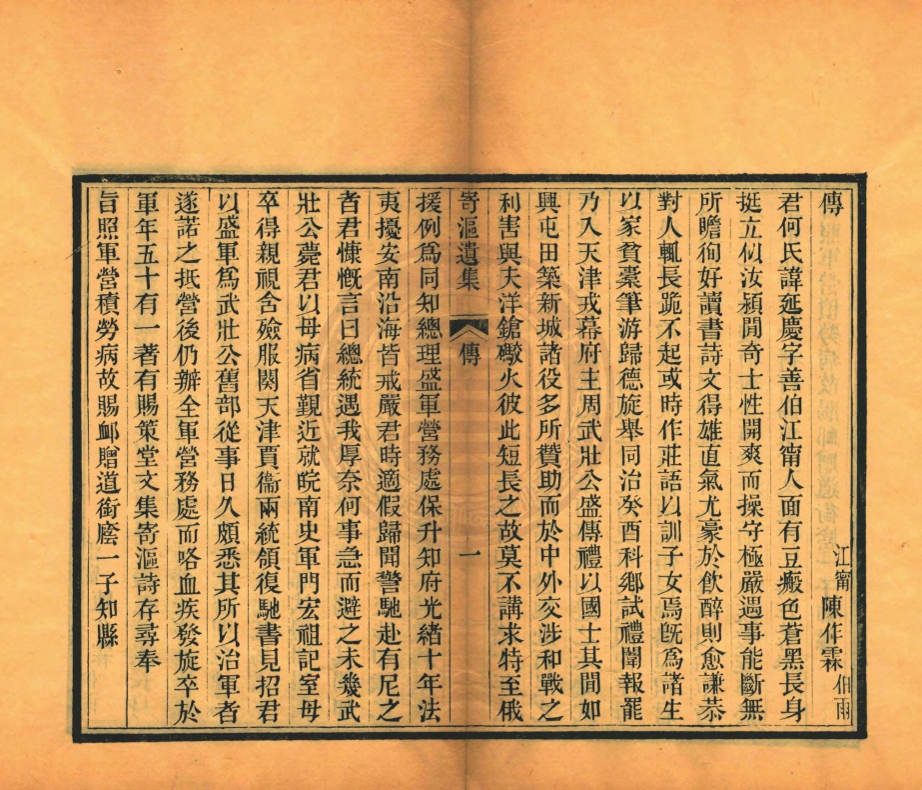 傳
江甯陳作霖伯雨
君何氏諱延慶字善伯江甯人面有豆瘢色蒼黑長身
挺立似汝潁閒奇士性開爽而操守極嚴遇事能斷無
所瞻徇好讀書詩文得雄直氣尤豪於飲醉則愈謙恭
對人輒長跪不起或時作莊語以訓子女焉旣爲諸生
以家貧橐筆游歸德旋舉同治癸酉科鄉試禮闈報罷
乃入天津戎幕府主周武壯公盛傳禮以國士其閒如
興屯田築新城諸役多所贊助而於中外交涉和戰之
利害與夫洋鎗礮火彼此短長之故莫不講求特至俄
寄漚遺集 傳 一
援例爲同知總理盛軍營務處保升知府光緒十年法
夷擾安南沿海皆戒嚴君時適假歸聞警馳赴有尼之
者君慷慨言曰總統遇我厚奈何事急而避之未幾武
壯公薨君以母病省覲近就皖南史軍門宏祖記室母
卒得親視含殮服闋天津賈衞兩統領復馳書見招君
以盛軍爲武壯公舊部從事日久頗悉其所以治軍者
遂諾之抵營後仍辦全軍營務處而咯血疾發旋卒於
軍年五十有一著有賜策堂文集寄漚詩存尋奉
旨照軍營積勞病故賜卹贈道銜廕一子知縣